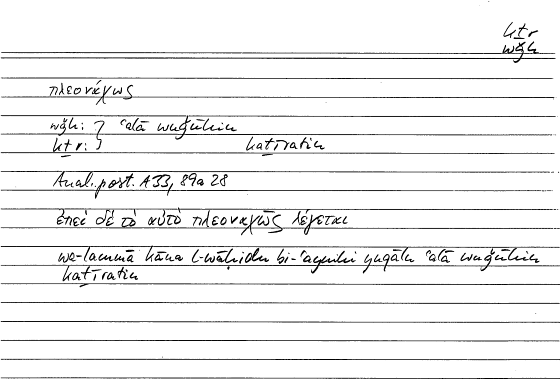 kṯr
wǧh
πλεονάχως
wǧh: } ʿalā wuǧūhin
kṯr: } kaṯīratin
Anal. post. A33, 89a 28
ἐπεὶ δὲ τὸ αὐτὸ πλεοναχῶς λέγεται
wa-lammā kāna l-wāḥidu bi-ʿaynihi yuqālu ʿalā wuǧūhin
kaṯīratin